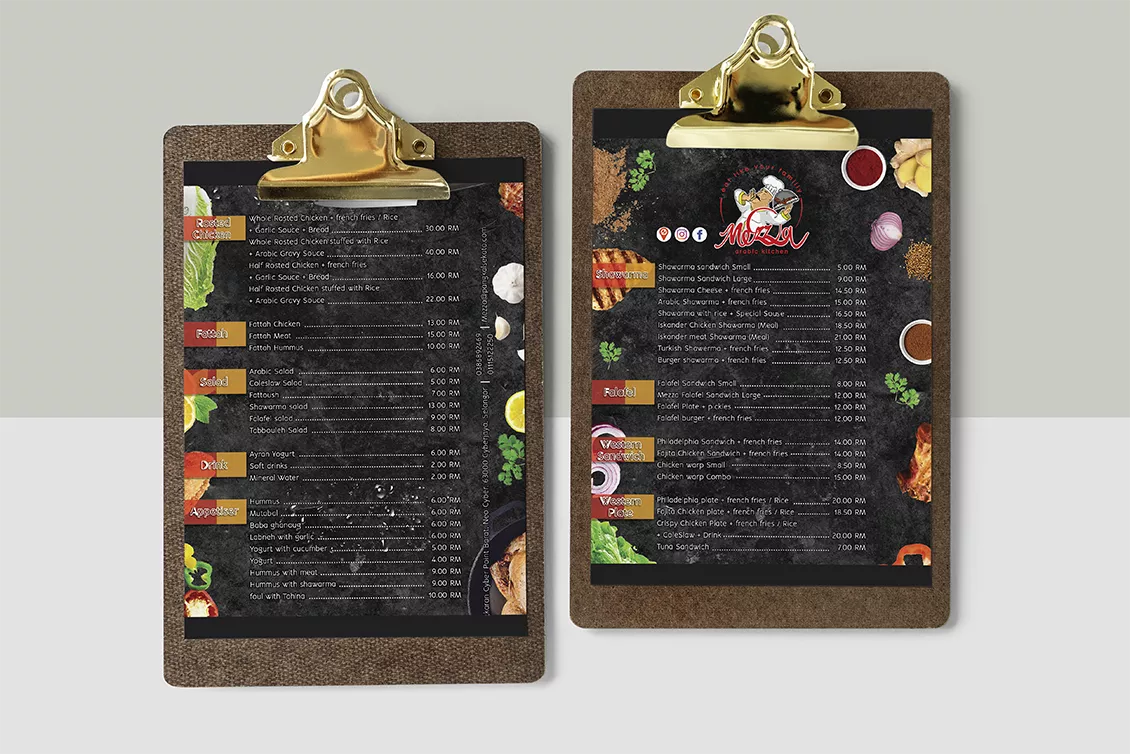 Rosted
Chicken
Whole Rosted Chicken + french fries / Rice
+ Garlic Souce + Bread 30.00 RM
Whole Rosted Chicken stuffed with Rice
+ Arabic Gravy Souce 40.00 RM
Half Rosted Chicken + french fries
+ Garlic Souce + Bread 16.00 RM
Half Rosted Chicken stuffed with Rice
+ Arabic Gravy Souce 22.00 RM
Fattah
Fattah Chicken 13.00 RM
Fattah Meat 15.00 RM
Fattah Hummus 10.00 RM
Salad
Arabic Salad 6.00 RM
Coleslaw Salad 5.00 RM
Fattoush 7.00 RM
Shawarma salad 13.00 RM
Falafel salad 9.00 RM
Tabbouleh Salad 8.00 RM
Drink
Ayran Yogurt 6.00 RM
Soft drinks 2.00 RM
Mineral Water 2.00 RM
Appetiser
Hummus 6.00 RM
Mutabal 6.00 RM
Baba ghanoug 6.00 RM
Labneh with garlic 6.00 RM
Yogurt with cucumber 5.00 RM
Yogurt 4.00 RM
Hummus with meat 9.00 RM
Hummus with shawarma 9.00 RM
foul with Tahina 10.00 RM
Cyber Point Barat, Neo Cyber, 63000 Cyberjaya, Selangor
your family
Mezza
arabic kitchen
Shawarma
Shawarma sandwich Small 5.00 RM
Shawarma Sandwich Large 9.00 RM
Shawarma Cheese + french fries 14.50 RM
Arabic Shawarma + french fries 15.00 RM
Shawarma with rice + Special Souse 16.50 RM
Iskander Chicken Shawarma (Meal) 18.50 RM
Iskander meat Shawarma (Meal) 21.00 RM
Turkish Shawerma + french fries 12.50 RM
Burger shawarma + french fries 12.50 RM
Falafel
Falafel Sandwich Small 8.00 RM
Mezza Falafel Sandwich Large 12.00 RM
Falafel Plate + pickles 12.00 RM
Falafel burger + french fries 12.00 RM
Western
Sandwich
Philadelphia Sandwich + french fries 14.00 RM
Fajita Chicken Sandwich + french fries 14.00 RM
Chicken warp Small 8.50 RM
Chicken warp Combo 15.00 RM
Western
Plate
Philadelphia plate + french fries / Rice 20.00 RM
Fajita Chicken plate + french fries / Rice 18.50 RM
Crispy Chicken Plate + french fries / Rice
+ ColeSlaw + Drink 20.00 RM
Tuna Sandwich 7.00 RM